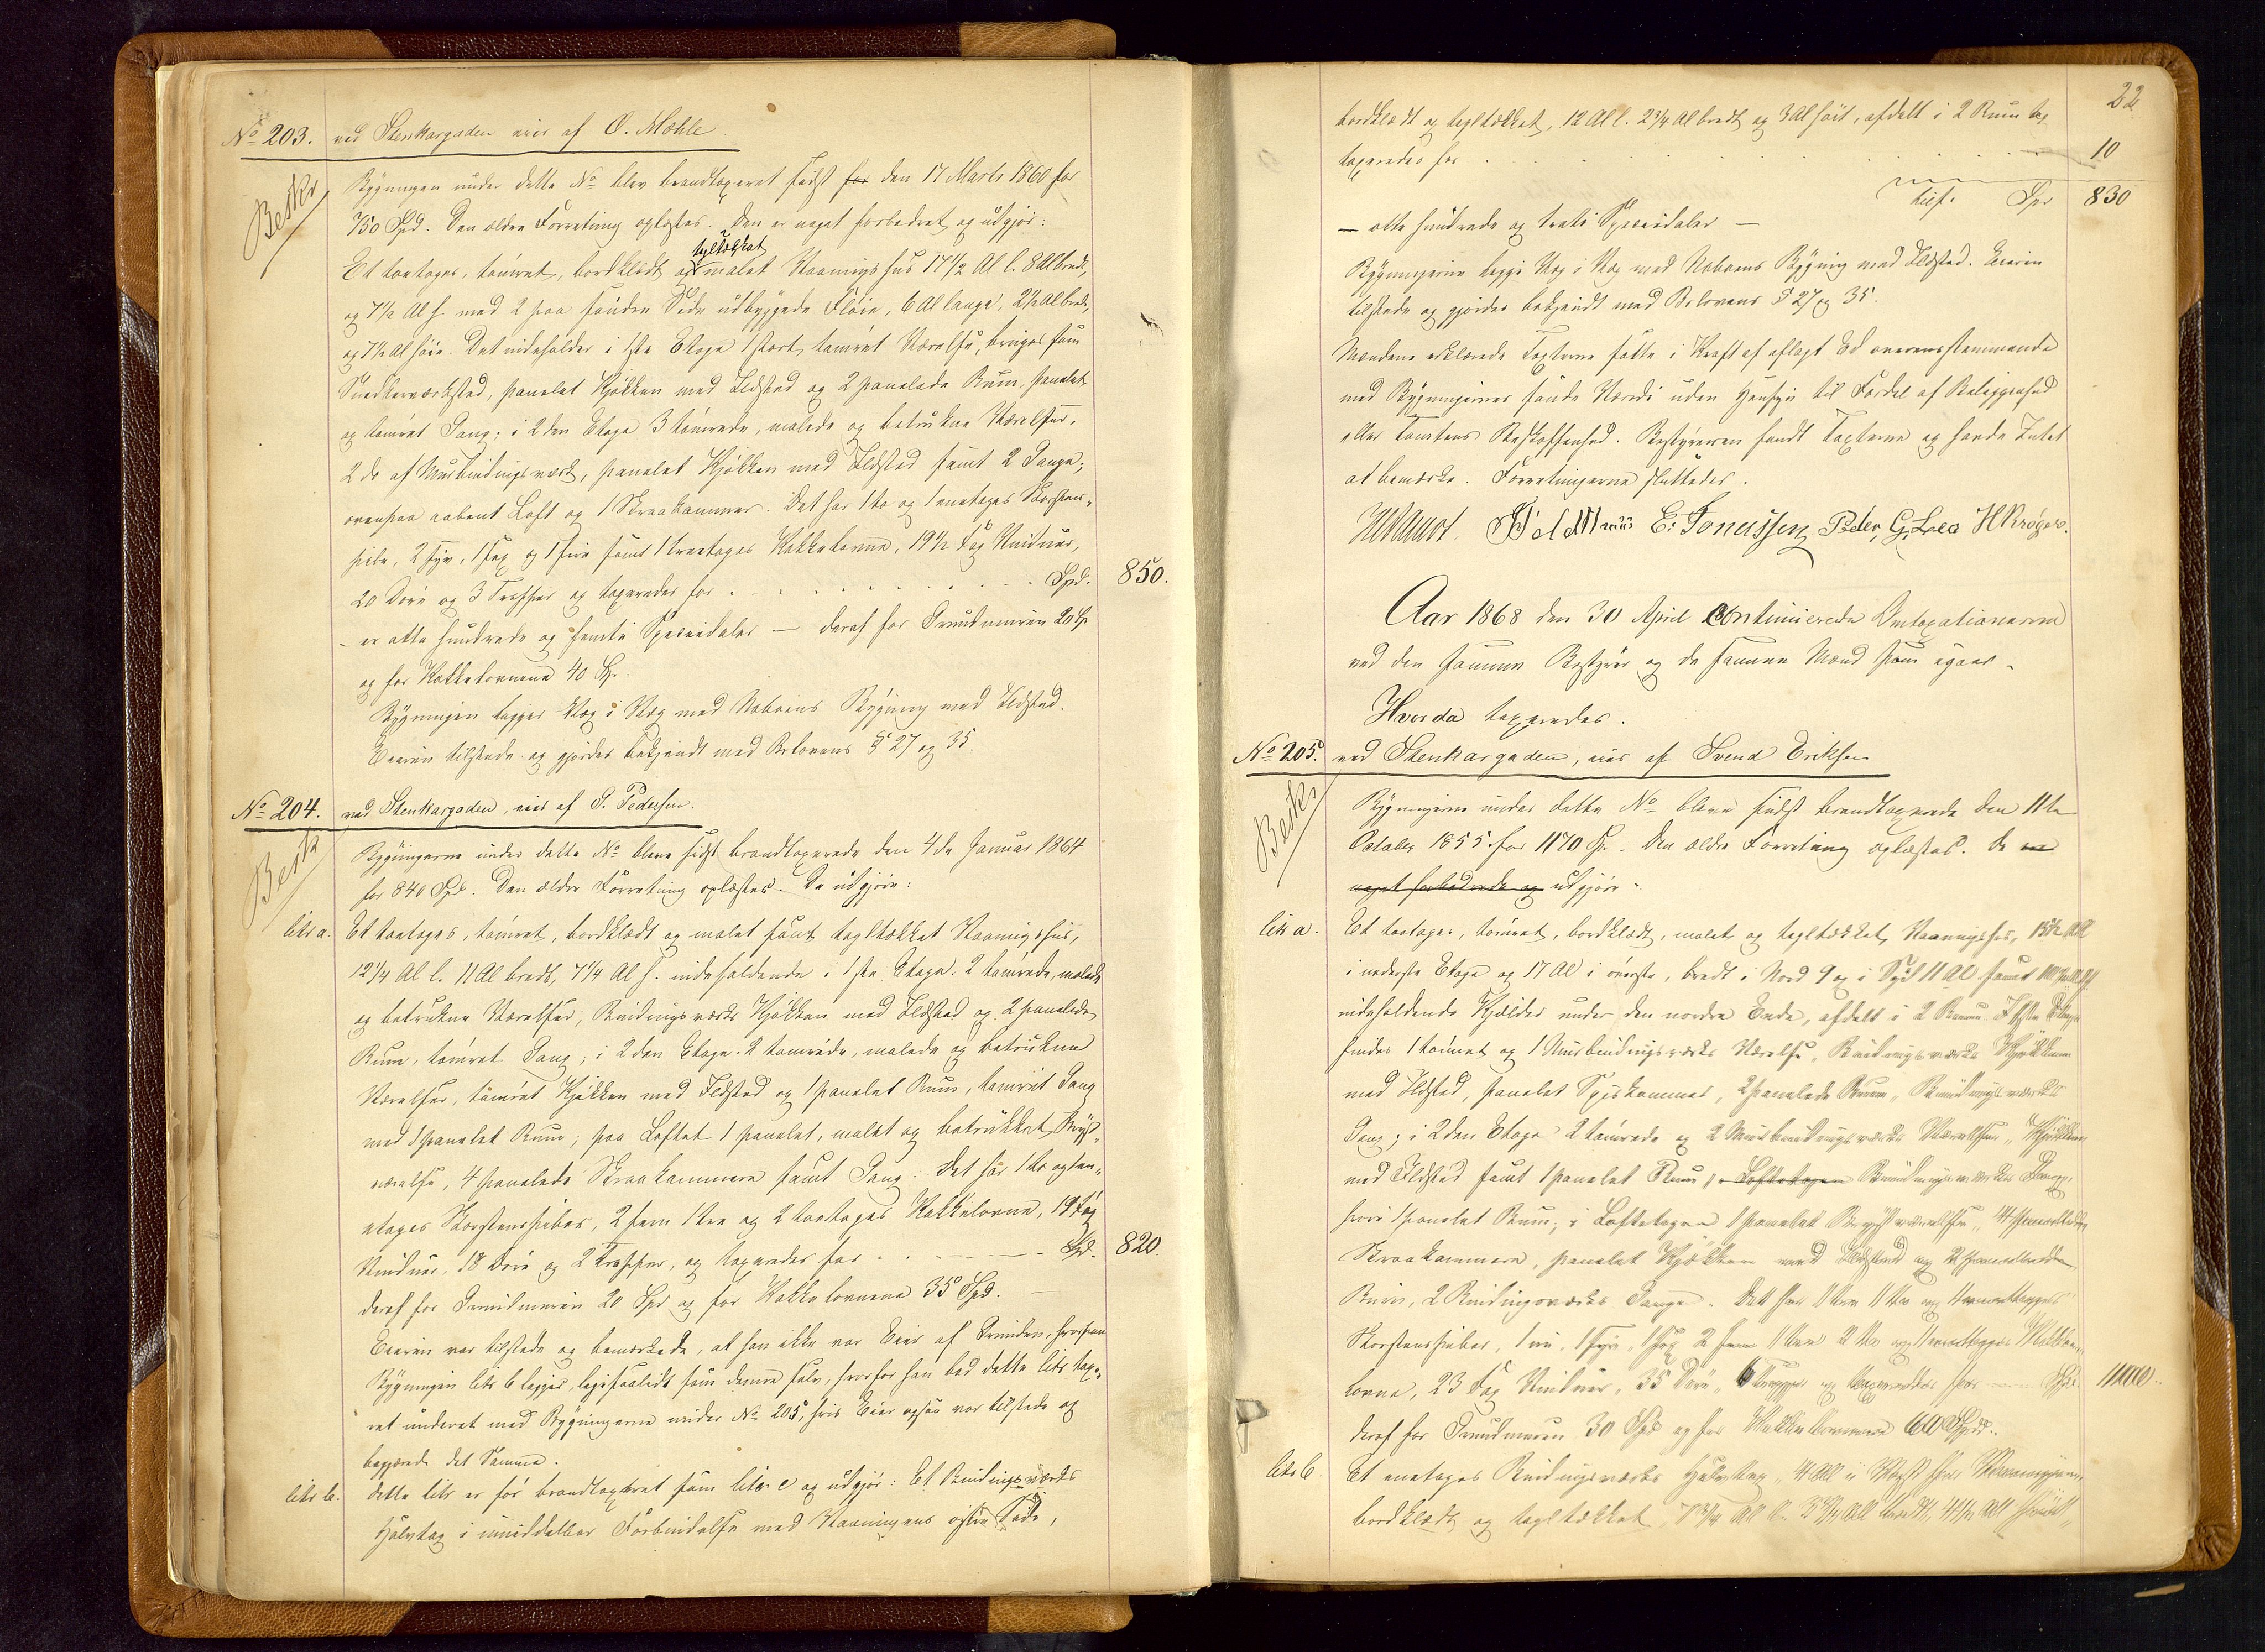 No 203. ved Stenkargaden eies af O. Mæhle.
Beskr
Bygningen under dette No blev brandtaxeret sidst for den 17 Marts 1860 for
750 Spd. Den ældre Forretning oplæstes. Den er noget forbedret og udgjør:
tegltækket
Et toetages, tømret, bordklædt og malet Vaaningshus 17 1/2 Al l. 8 Al bredt,
og 7 1/2 Al h. med 2 paa søndre Side udbyggede Fløie, 6 Al lange, 2 1/2 Al brede,
og 7 1/2 Al høie. Det indeholder i 1ste Etage 1 stort tømret Værelse, bruges som
Snedkerværksted, panelet Kjøkken med Ildsted og 2 panelede Rum, panelet
og tømret Gang; i 2den Etage 3 tømrede, malede og betrukne Værelser,
2 do af Murbindingsværk, panelet Kjøkken med Ildsted samt 2 Gange;
ovenpaa aabent Loft og 1 Skraakammer. Det har 1 to og 1 enetages Skorstens-
pibe, 2 Fyr, 1 sex og 1 fire samt 1 treetages Kakkelovne, 19 1/2 Fag Vinduer,
20 Døre og 3 Trapper og taxeredes for . . . Spd. 850.
- er otte hundrede og femti Speciedaler — deraf for Grundmuren 20 Sp
og for Kakkelovnene 40 Sp.
Bygningen ligger Væg i Væg med Naboens Bygning med Ildsted.
Eieren tilstede og gjordes bekjendt med Br.lovens § 27 og 35.
No 204. ved Stenkargaden, eies af S. Pedersen.
Beskr
Bygningerne under dette No bleve sidst brandtaxerede den 4de Januar 1864
for 840 Spd. Den ældre Forretning oplæstes. De udgjøre:
litr a. Et toetages, tømret, bordklædt og malet samt tegltækket Vaaningshus,
12 1/4 Al l. 11 Al bredt, 7 1/4 Al h. indeholdende i 1ste Etage. 2 tømrede, malede
og betrukne Værelser, Bindingsværks Kjøkken med Ildsted og 2 panelede
Rum, tømret Gang; i 2den Etage. 2 tømrede, malede og betrukne
Værelser, tømret Kjøkken med Ildsted og 1 panelet Rum, tømret Gang
med 1 panelet Rum; paa Loftet 1 panelet, malet og betrukket Kvist-
værelse, 4 panelede Skraakammere samt Gang. Det har 1 to og 1 en-
etages Skorstenspiber, 2 fem 1 tre og 2 toetages Kakkelovne, 19 Fag
Vinduer, 18 Døre og 2 Trapper, og taxeredes for . . . Spd. 820.
deraf for Grundmuren 20 Spd og for Kakkelovnene 35 Spd.
Eieren var tilstede og bemærkede, at han ikke var Eier af Grunden, hvorpaa
Bygningen litr b ligger, ligesaalidt som denne selv, hvorfor han bad dette litr taxe-
ret underet med Bygningerne under No 205, hvis Eier ogsaa var tilstede og
begjærede det Samme.
litr b. dette litr er før brandtaxeret som litr c og udgjør: Et Bindingsværks
Halvtag i umiddelbar Forbindelse med Vaaningens østre Side,
22
bordklædt og tegltækket, 12 Al l. 2 3/4 Al bredt og 3 Al høit, afdelt i 2 Rum og
taxeredes for . . . 10
tils. Spd 830
— otte hundrede og treti Speciedaler —
Bygningerne ligge Væg i Væg med Naboens Bygning med Ildsted. Eieren
tilstede og gjordes bekjendt med Br.lovens § 27 og 35.
Mændene erklærede Taxterne satte i Kraft af aflagt Ed overensstemmende
med Bygningernes sande Værdi uden Hensyn til Fordel af Beliggenhed
eller Tomtens Beskaffenhed. Bestyreren fandt Taxterne og havde Intet
at bemærke. Forretningerne sluttedes.
E. Jonassen Peder G. Lea H Krøger.
Aar 1868 den 30 April Continuerede Omtaxationerne
ved den samme Bestyrer og de samme Mænd som igaar.
Hvorda taxeredes.
No 205. ved Stenkargaden, eies af Svend Eriksen
Beskr
Bygningerne under dette No bleve sidst brandtaxerede den 11te
October 1855 for 1170 Sp. Den ældre Forretning oplæstes. De ere
noget forbedrede og udgjøre:
litr a. Et toetages, tømret, bordklædt, malet og tegltækket, Vaaningshus, 15 1/2 Al l
i nederste Etage og 17 Al i øverste, bredt i Nord 9 og i Syd 11 Al samt
indeholdende Kjælder under den nordre Ende, afdelt i 2 Rum. I 1ste Etage
findes 1 tømret og 1 Murbindingsværks Værelse, Bindingsværks Kjøkken
med Ildsted, panelet Spiskammer, 2 panelede Rum, Bindingsværks
Gang; i 2den Etage 2 tømrede og 2 Murbindingsværks Værelser, Kjøkken
med Ildsted samt 1 panelet Rum, Loftetagen Bindingsværks Gang,
hvori 1 panelet Rum; i Loftetagen 1 panelet Kvistværelse, 4 panelede
Skraakammere, panelet Kjøkken med Ildsted og 2 panelede
Rum, 2 Bindingsværks Gange. Det har 1 tre 1 to og 1 enetages
Skorstenspiber, 1 Fyr, 1 sex 2 fem 1 tre 2 to og 1 enetages Kakkel-
lovne, 23 Fag Vinduer, 35 Døre, 6 Trapper og taxeredes for Spd.
deraf for Grundmuren 30 Spd og for Kakkelovnene 60 Spd.
litr b. Et enetages Bindingsværks Halvtag, 4 Al i Vest for Vaaningen,
bordklædt og tegltækket, 7 3/4 Al l. 3 3/4 Al bredt, 4 1/2 Al høit,